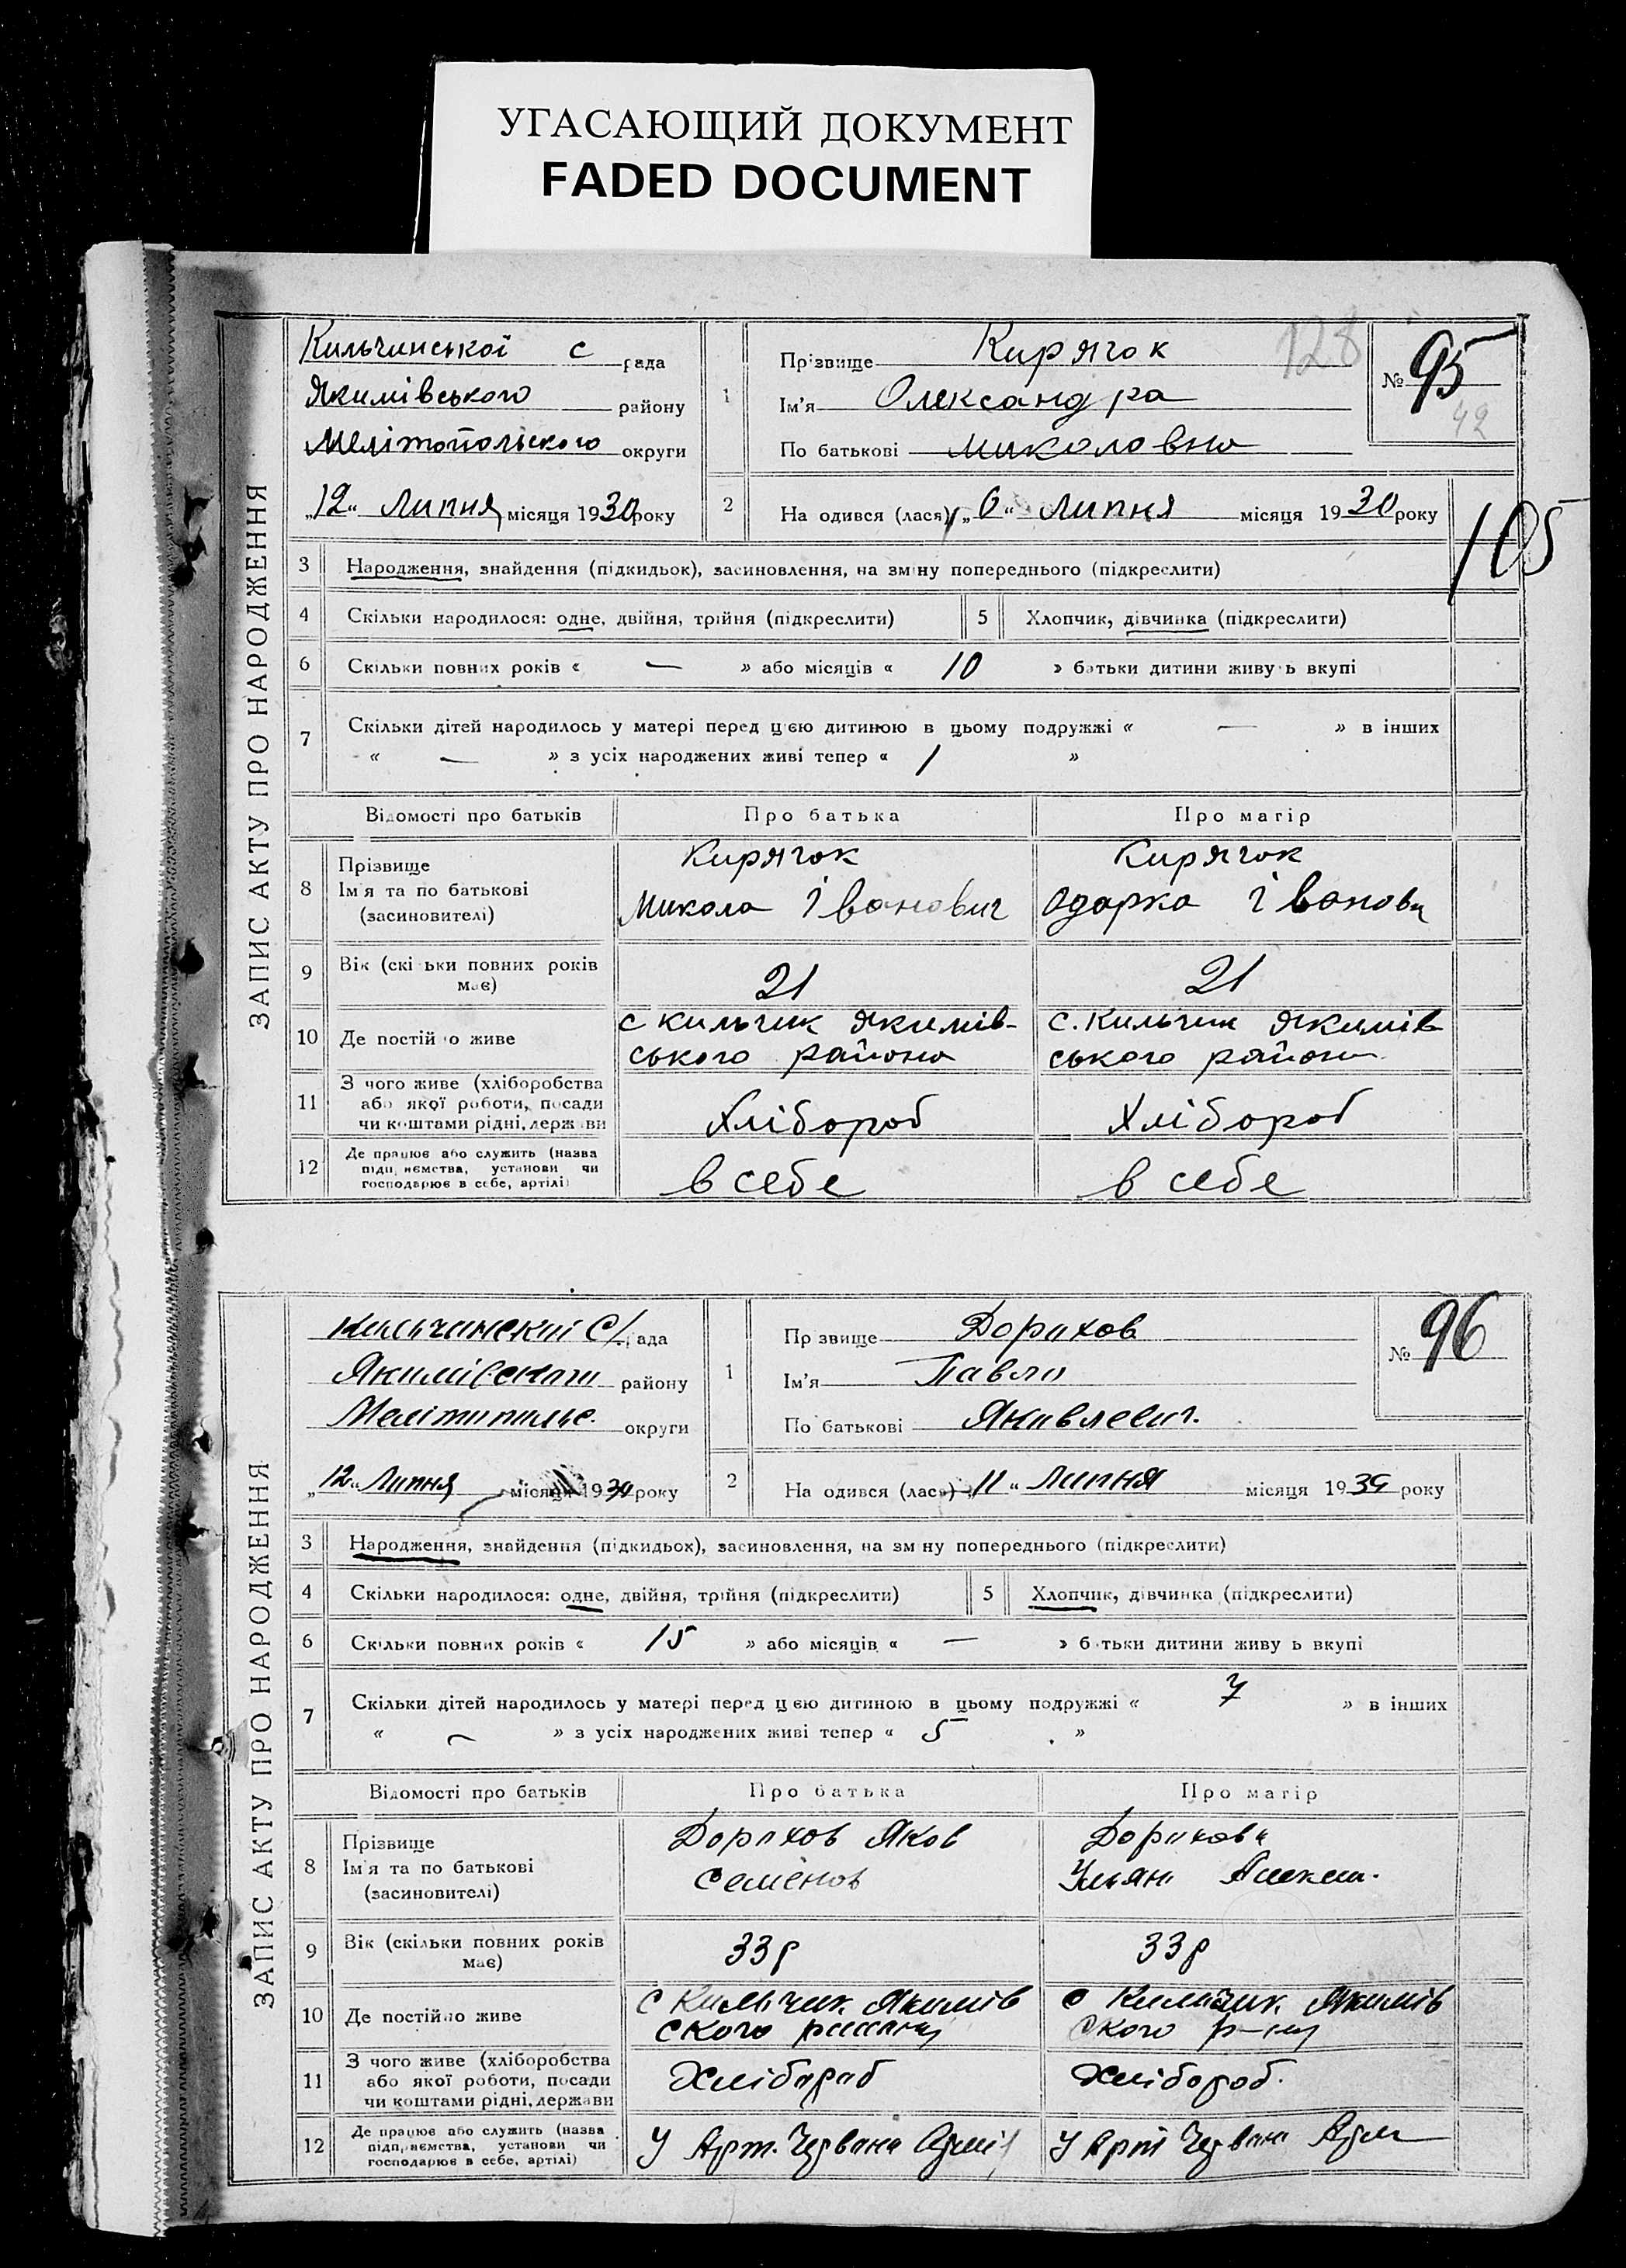 УГАСАЮЩИЙ ДОКУМЕНТ
FADED DOCUMENT
ЗАПИС АКТУ ПРО НАРОДЖЕННЯ
Кильчинської с рада
Якимівського району
Мелітопольского округи
„12“ Липня місяця 1930 року
1
Прізвище Кирячок
Ім'я Олександра
По батькові Миколовна
128
№ 95
42
2
На одився (лася) „6“ Липня місяця 1930 року
105
3 Народження, знайдення (підкидьок), засиновлення, на зміну попереднього (підкреслити)
4 Скільки народилося: одне, двійня, трійня (підкреслити) 5 Хлопчик, дівчинка (підкреслити)
6 Скільки повних років « — » або місяців « 10 » батьки дитини живу ь вкупі
7 Скільки дітей народилось у матері перед цією дитиною в цьому подружжі « — » в інших
« — » з усіх народжених живі тепер « 1 »
Відомості про батьків Про батька Про матір
8 Прізвище
Ім'я та по батькові
(засиновителі)
Кирячок
Микола Іванович
Кирячок
Одарка Іванов
9 Вік (скі ьки повних років
має)
21 21
10 Де постій о живе
с Кильчик Якимів-
ського района
с. Кильчик Якимів
ського района
11 З чого живе (хліборобства
або якої роботи, посади
чи коштами рідні, держави
Хлібороб Хлібороб
12 Де працює або служить (назва
підприємства, установи чи
господарює в себе, артілі)
в себе в себе
ЗАПИС АКТУ ПРО НАРОДЖЕННЯ
Кильчинский С/рада
Якимівского району
Мелітопольс. округи
„12“ Липня місяця 1930 року
1
Пр звище Дорихов
Ім'я Павло
По батькові Яковлевич.
№ 96
2
На одився (лася) „11“ Липня місяця 1930 року
3 Народження, знайдення (підкидьох), засиновлення, на зм ну попереднього (підкреслити)
4 Скільки народилося: одне, двійня, трійня (підкреслити) 5 Хлопчик, дівчинка (підкреслити)
6 Скільки повних років « 15 » або місяців « — » б тьки дитини живу ь вкупі
7 Скільки дітей народилось у матері перед цією дитиною в цьому подружжі « 7 » в інших
« — » з усіх народжених живі тепер « 5 »
Відомості про батьків Про батька Про матір
8 Прізвище
Ім'я та по батькові
(засиновителі)
Дорихов Яков
Семенов
Дорихова
Ульян
9 Вік (скільки повних років
має)
33р 33р
10 Де постійно живе
с Кильчик Якимів
ского
с Кильчик Якимів
ского р-ну
11 З чого живе (хліборобства
або якої роботи, посади
чи коштами рідні, держави
Хлібораб Хлібороб.
12 Де працює або служить (назва
підприємства, установи чи
господарює в себе, артілі)
У Арт. Червана
У Арт Червана